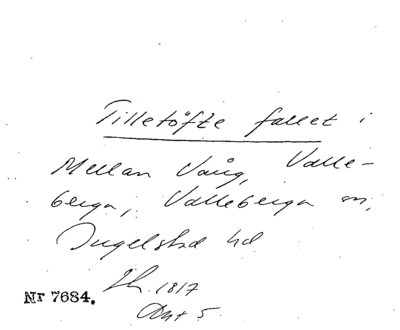 Tilletöfte fallet i
Mellan Vång, Valle-
berga, Valleberga sn,
Ingelstad hd
Sk. 1817
Akt 5
Nr 7684.